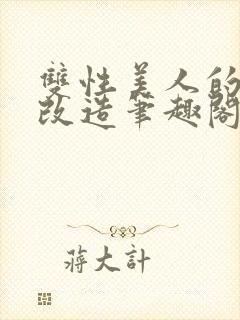 雙性美人的
改造筆趣閣
蔣大計